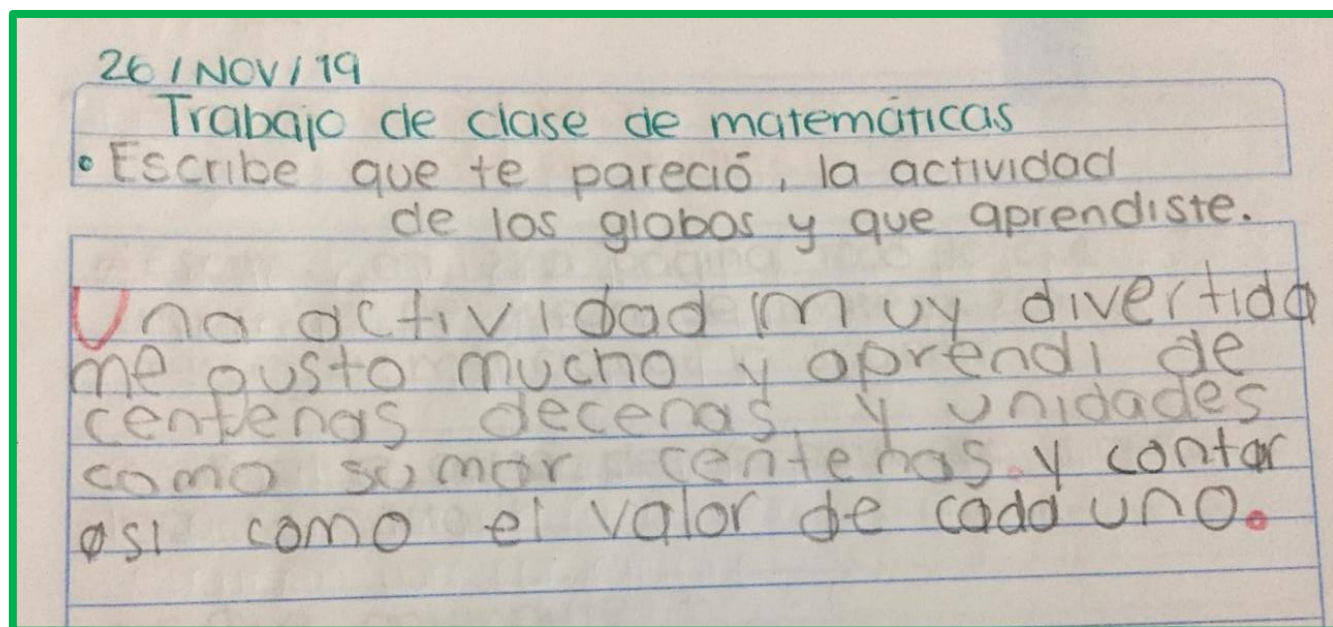 26/NOV/19
Trabajo de clase de matemáticas
• Escribe que te pareció, la actividad
de los globos y que aprendiste.
Una actividad muy divertida
me gusto mucho y aprendi de
centenas decenas y unidades
como sumar centenas y contar
asi como el valor de cada uno.